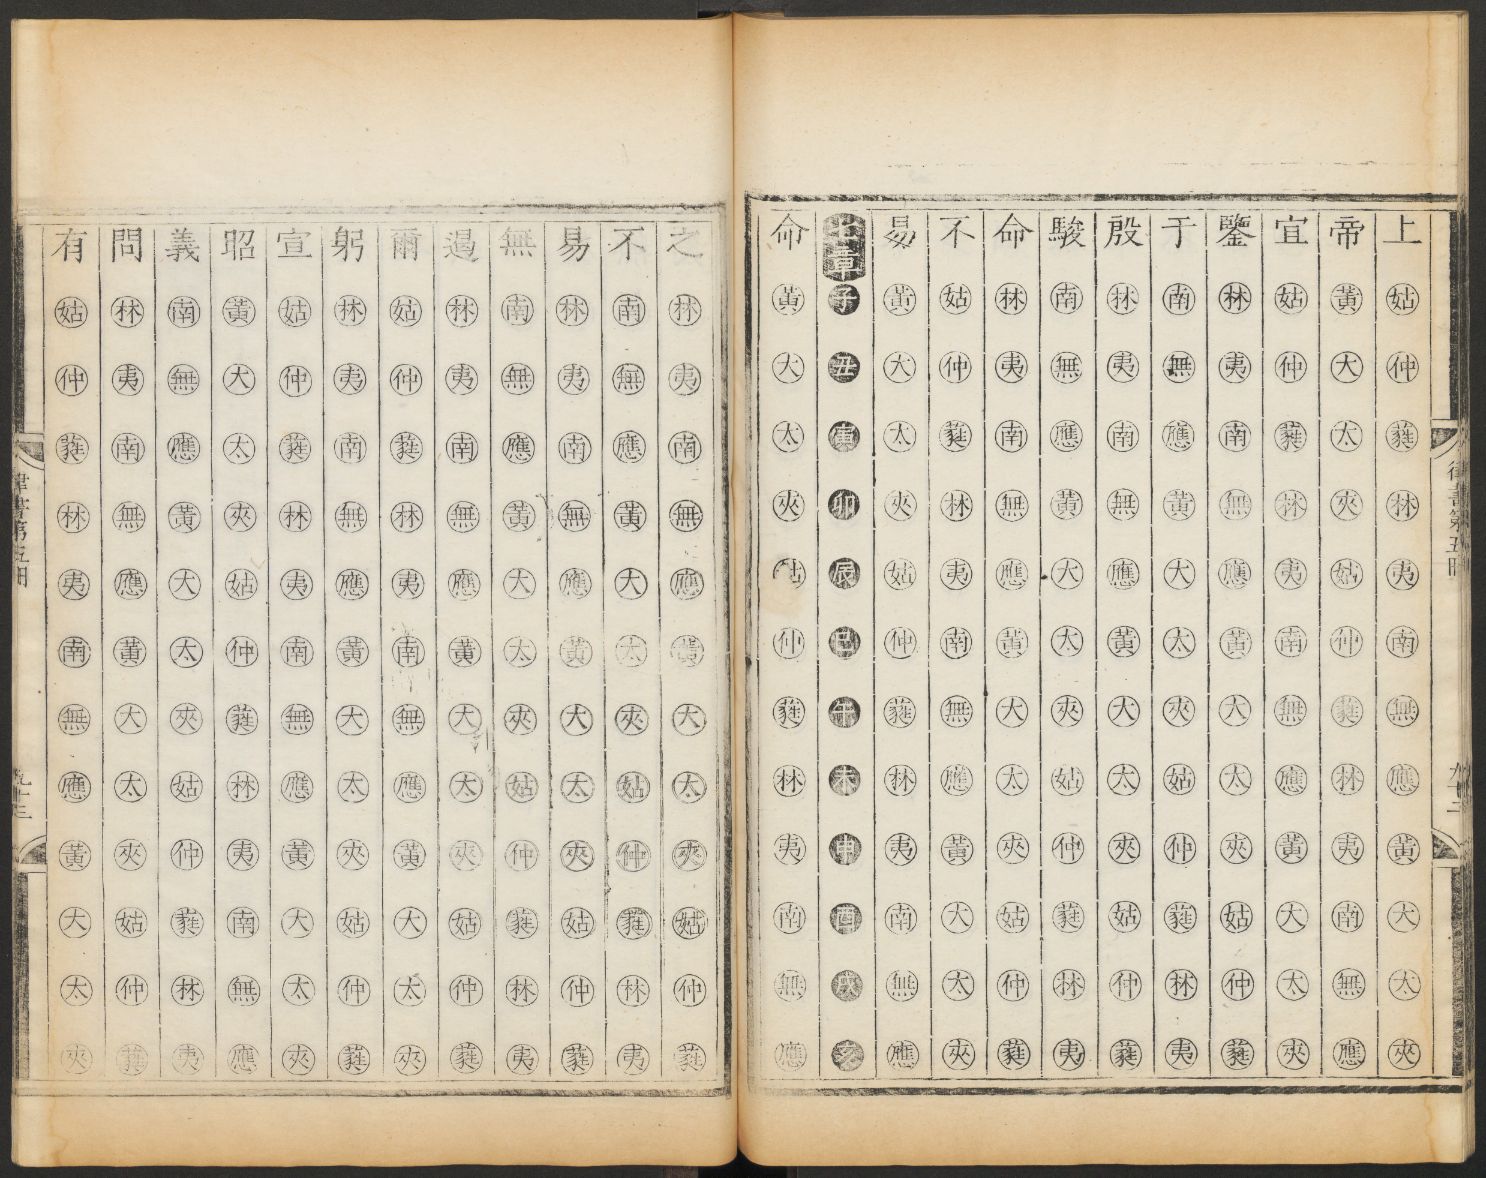 上姑仲蕤林夷南無應黃大太夾
帝黃大太夾姑仲蕤林夷南無應
宜姑仲蕤林夷南無應黃大太夾
鑒林夷南無應黃大太夾姑仲蕤
于南無應黃大太夾姑仲蕤林夷
殷林夷南無應黃大太夾姑仲蕤
駿南無應黃大太夾姑仲蕤林夷
命林夷南無應黃大太夾姑仲蕤
不姑仲蕤林夷南無應黃大太夾
易黃大太夾姑仲蕤林夷南無應
七章子丑寅卯辰巳午未申酉戌亥
命黃大太夾姑仲蕤林夷南無應
之林夷南無應黃大太夾姑仲蕤
不南無應黃大太夾姑仲蕤林夷
易林夷南無應黃大太夾姑仲蕤
無南無應黃大太夾姑仲蕤林夷
遏林夷南無應黃大太夾姑仲蕤
爾姑仲蕤林夷南無應黃大太夾
躬林夷南無應黃大太夾姑仲蕤
宣姑仲蕤林夷南無應黃大太夾
昭黃大太夾姑仲蕤林夷南無應
義南無應黃大太夾姑仲蕤林夷
問林夷南無應黃大太夾姑仲蕤
有姑仲蕤林夷南無應黃大太夾
律書第五